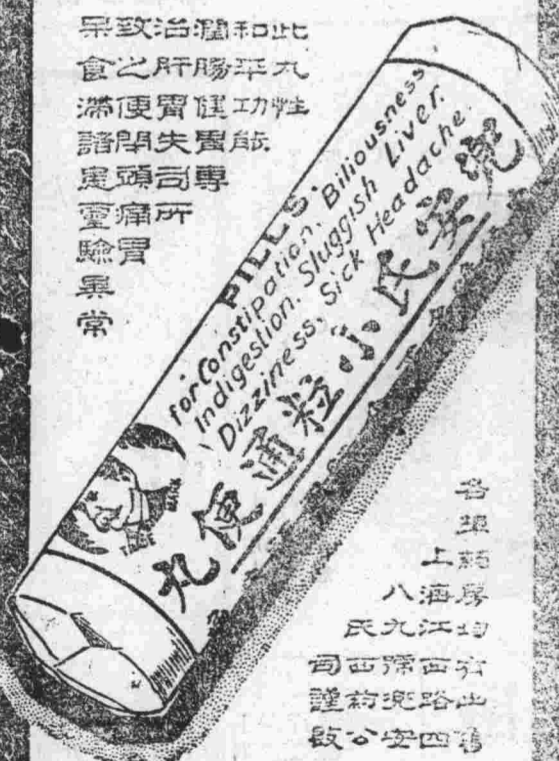 此丸性
和平功能
潤腸健胃專
治肝胃失司所
致之便閉頭痛胃
呆食滯諸患靈驗異常
PILLS.
for Constipation, Biliousness
Indigestion, Sluggish Liver,
Dizziness, Sick Headache.
兜安氏小粒通便丸
各埠药房均有出售
上海江西路四
八九號兜安
氏西药公
司謹啟